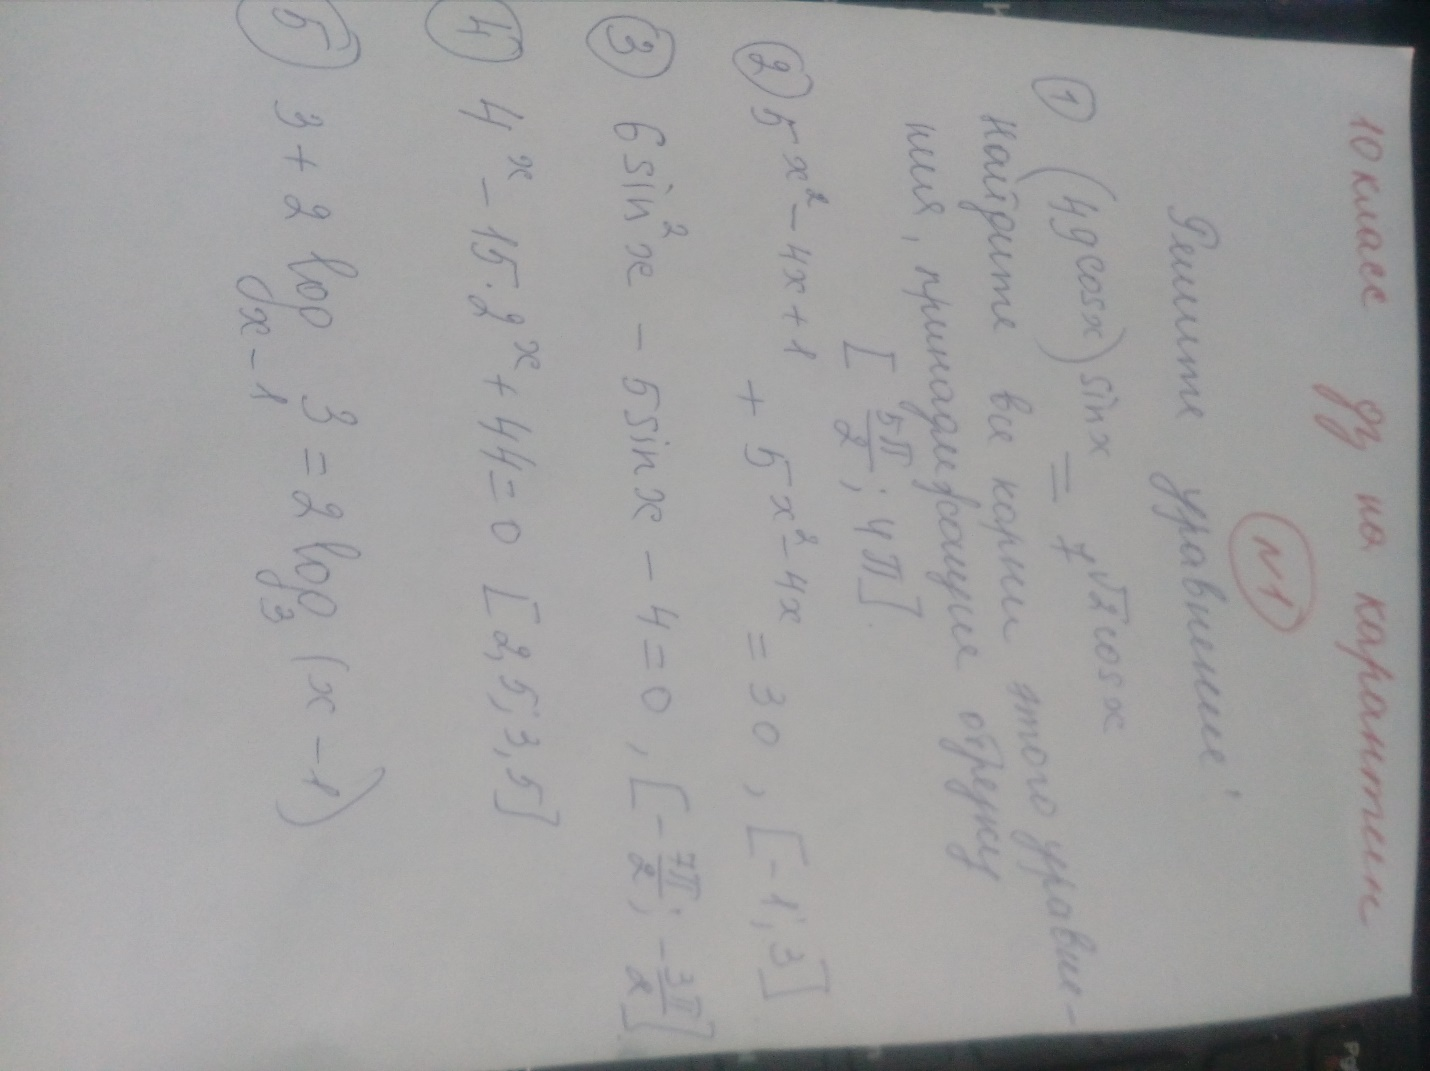 10 класс дз на карантин
N1
Решите уравнение:
① (49cosx)^sinx = 7^√2cosx
Найдите все корни этого уравне-
ния, принадлежащие отрезку
[5π/2; 4π].
② 5^x²-4x+1 + 5^x²-4x = 30, [-1; 3]
③ 6sin²x - 5sinx - 4 = 0, [-7π/2; -3π/2]
④ 4^x - 15·2^x + 44 = 0 [2,5; 3,5]
⑤ 3 + 2log_x-1 3 = 2log_3 (x-1)